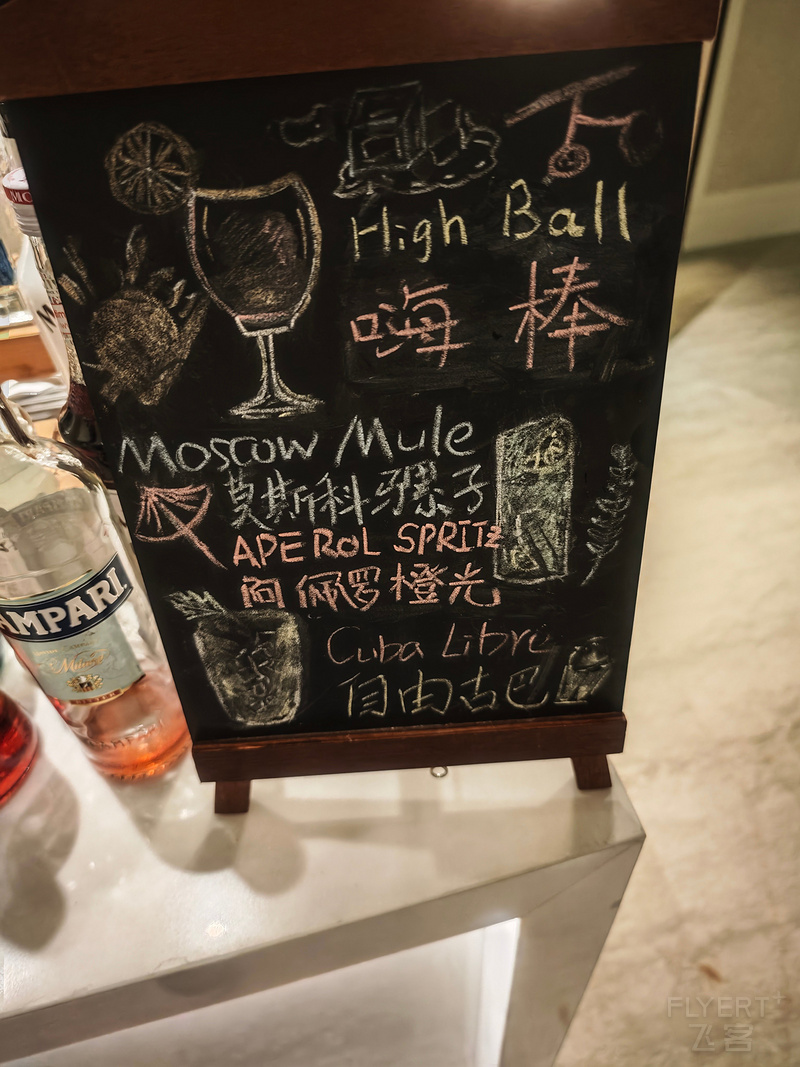 High Ball
嗨棒
Moscow Mule
莫斯科骡子
APEROL SPRITZ
阿佩罗橙光
Cuba Libre
自由古巴
AMPARI
Milano
FLYERT+
飞客